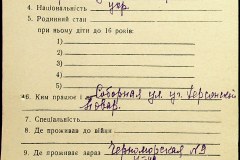 4. Національність укр.
5. Родинний стан
при ньому діти до 16 років:
1)
2)
3)
4)
5)
6. Ким працює і Соборная ул. уг. Херсонской
Повар.
7. Спеціяльність
8. Де проживав до війни
9. Де проживає зараз Черноморская №9